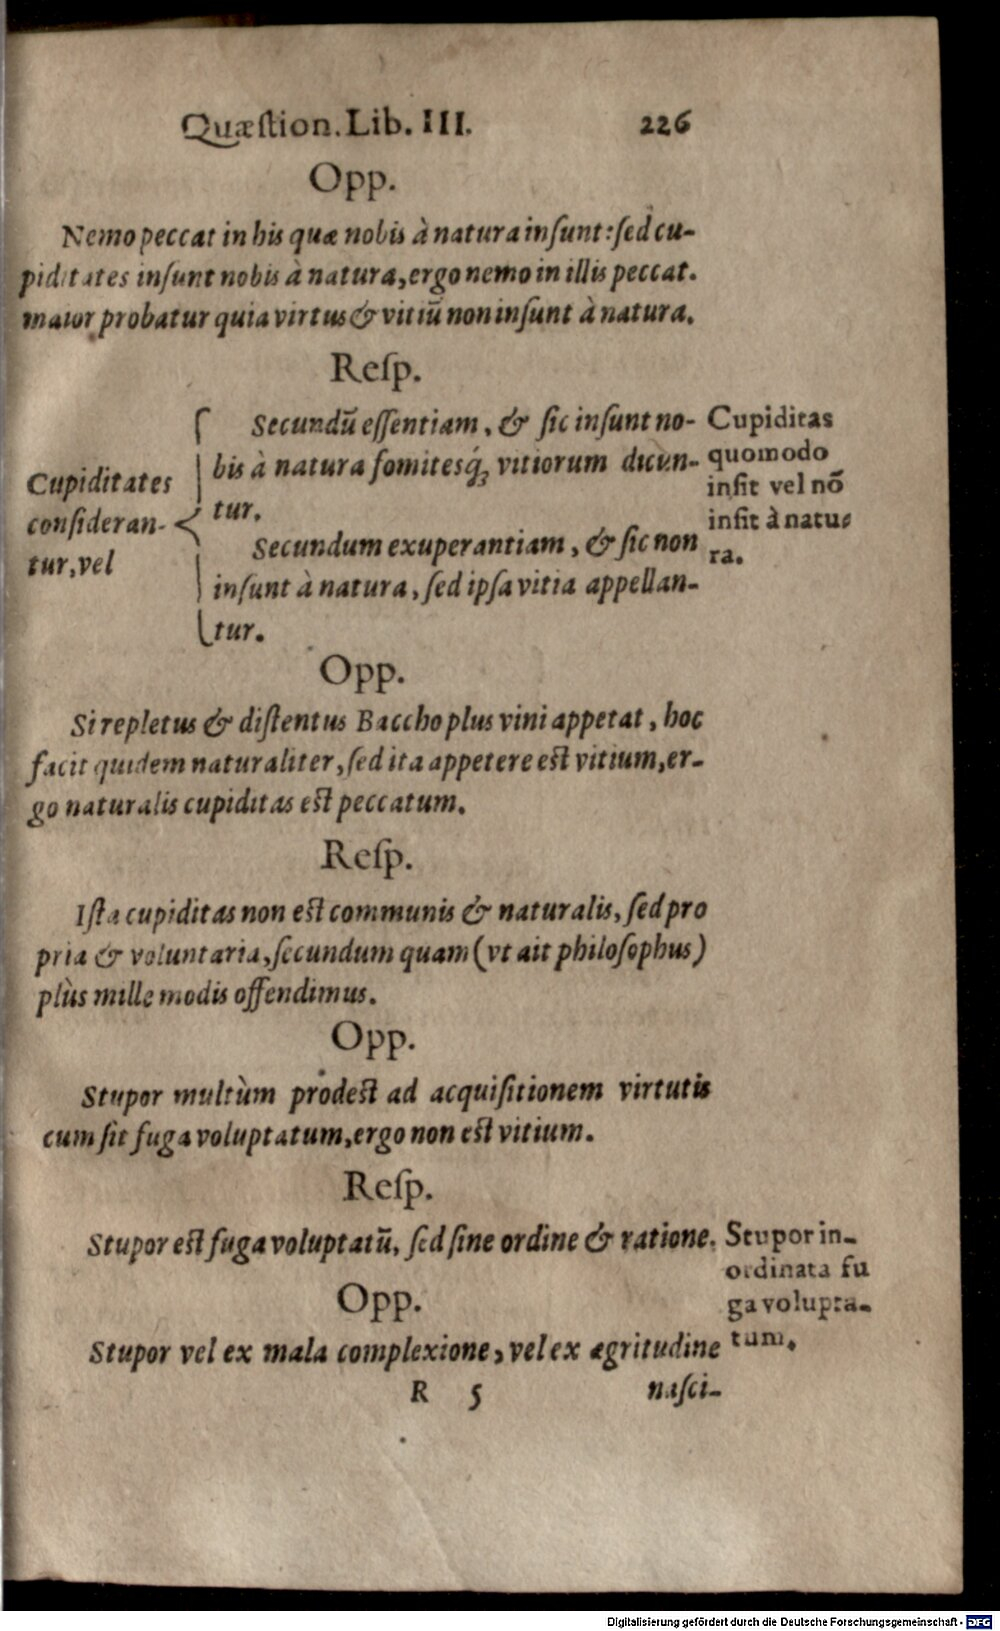 Quæſtion. Lib. III. 226
Opp.
Nemo peccat in his quæ nobis à natura inſunt: ſed cu-
piditates inſunt nobis à natura, ergo nemo in illis peccat.
maior probatur quia virtus & vitiū non inſunt à natura.
Reſp.
Cupiditates
conſideran-
tur, vel
Secundū eſſentiam, & ſic inſunt no-
bis à natura fomitesq́; vitiorum dicun-
tur.
Secundum exuperantiam, & ſic non
inſunt à natura, ſed ipſa vitia appellan-
tur.
Cupiditas
quomodo
inſit vel nō
inſit à natu-
ra.
Opp.
Si repletus & diſtentus Baccho plus vini appetat, hoc
facit quidem naturaliter, ſed ita appetere eſt vitium, er-
go naturalis cupiditas eſt peccatum.
Reſp.
Iſta cupiditas non eſt communis & naturalis, ſed pro
pria & voluntaria, ſecundum quam (vt ait philoſophus)
plùs mille modis offendimus.
Opp.
Stupor multùm prodeſt ad acquiſitionem virtutis
cum ſit fuga voluptatum, ergo non eſt vitium.
Reſp.
Stupor eſt fuga voluptatū, ſed ſine ordine & ratione.
Stupor in-
ordinata fu
ga volupta-
tum.
Opp.
Stupor vel ex mala complexione, vel ex ægritudine
R 5 naſci-
Digitalisierung gefördert durch die Deutsche Forschungsgemeinschaft - DFG